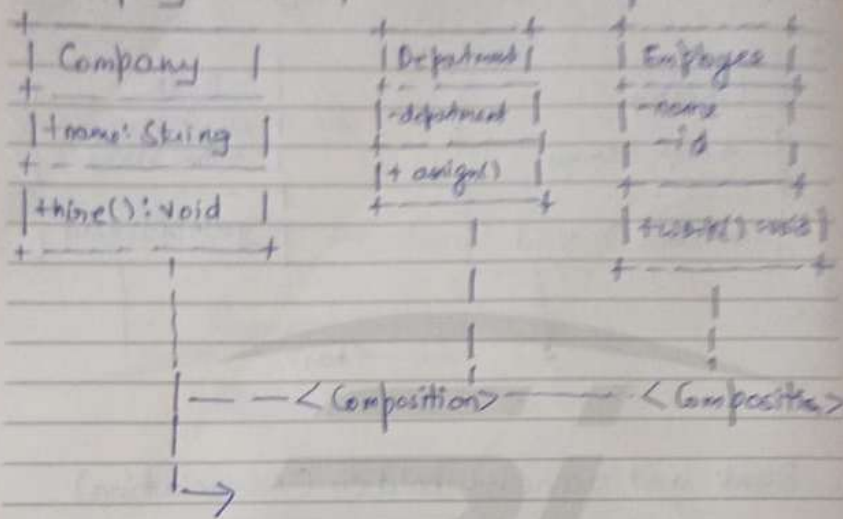 Company
+name: String
+hire(): void
Department
-department
+ assign()
Employee
-name
-id
<Composition>
<Composition>